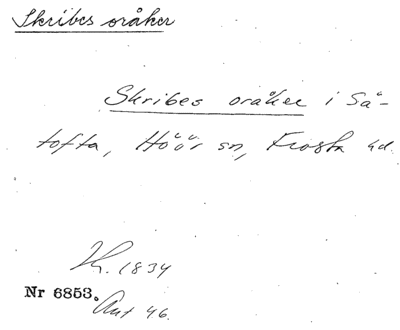 Skribes oråker
Skribes oråker i Så-
tofta, Höör sn, Frosta hd.
1834
Nr 6853.
Ant 46.